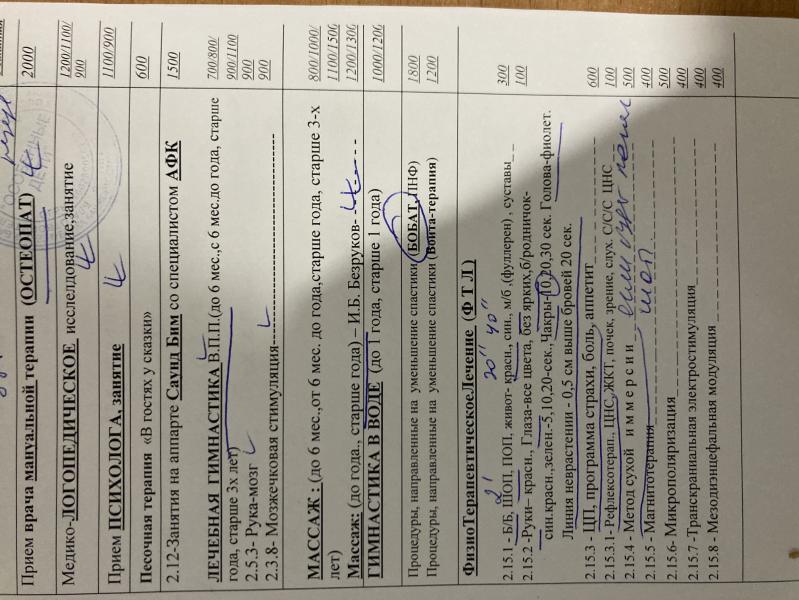 Прием врача мануальной терапии (ОСТЕОПАТ) 2000
Медико-ЛОГОПЕДИЧЕСКОЕ исслелдование,занятие 1200/1100/
900
Прием ПСИХОЛОГА, занятие 1100/900
Песочная терапия «В гостях у сказки» 600
2.12-Занятия на аппарте Саунд Бим со специалистом АФК 1500
ЛЕЧЕБНАЯ ГИМНАСТИКА В.П.П.(до 6 мес.,с 6 мес.до года, старше 700/800/
года, старше 3х лет) 900/1100
2.5.3- Рука-мозг 900
2.3.8- Мозжечковая стимуляция 900
МАССАЖ : (до 6 мес.,от 6 мес. до года,старше года, старше 3-х 800/1000/
лет) 1100/1500
Массаж; (до года., старше года) – И.Б. Безруков- 1200/1300
ГИМНАСТИКА В ВОДЕ (до 1 года, старше 1 года) 1000/1200
Процедуры, направленные на уменьшение спастики (БОБАТ, ПНФ) 1800
Процедуры, направленные на уменьшение спастики (Войта-терапия) 1200
ФизиоТерапевтическоеЛечение (Ф Т Л)
20" 40"
2.15.1 - Б/Б, ШОП, ПОП, живот- красн., син., м/б ,(фуллерен) , суставы 300
2.15.2 -Руки– красн., Глаза-все цвета, без ярких,б/родничок- 100
син.красн.,зелен.-5,10,20-сек., Чакры-10,20,30 сек. Голова-фиолет.
Линия неврастении - 0,5 см выше бровей 20 сек.
2.15.3 - ЦП, программа страхи, боль, аппетит 600
2.15.3.1- Рефлексотерап., ЦНС, ЖКТ, почек, зрение, слух. С/С/С ЦНС 100
2.15.4 - Метод сухой иммерсии 500
2.15.5 - Магнитотерапия шоп 400
2.15.6- Микрополяризация 500
400
2.15.7 -Транскраниальная электростимуляция 400
2.15.8 - Мезодиэнцефальная модуляция 400